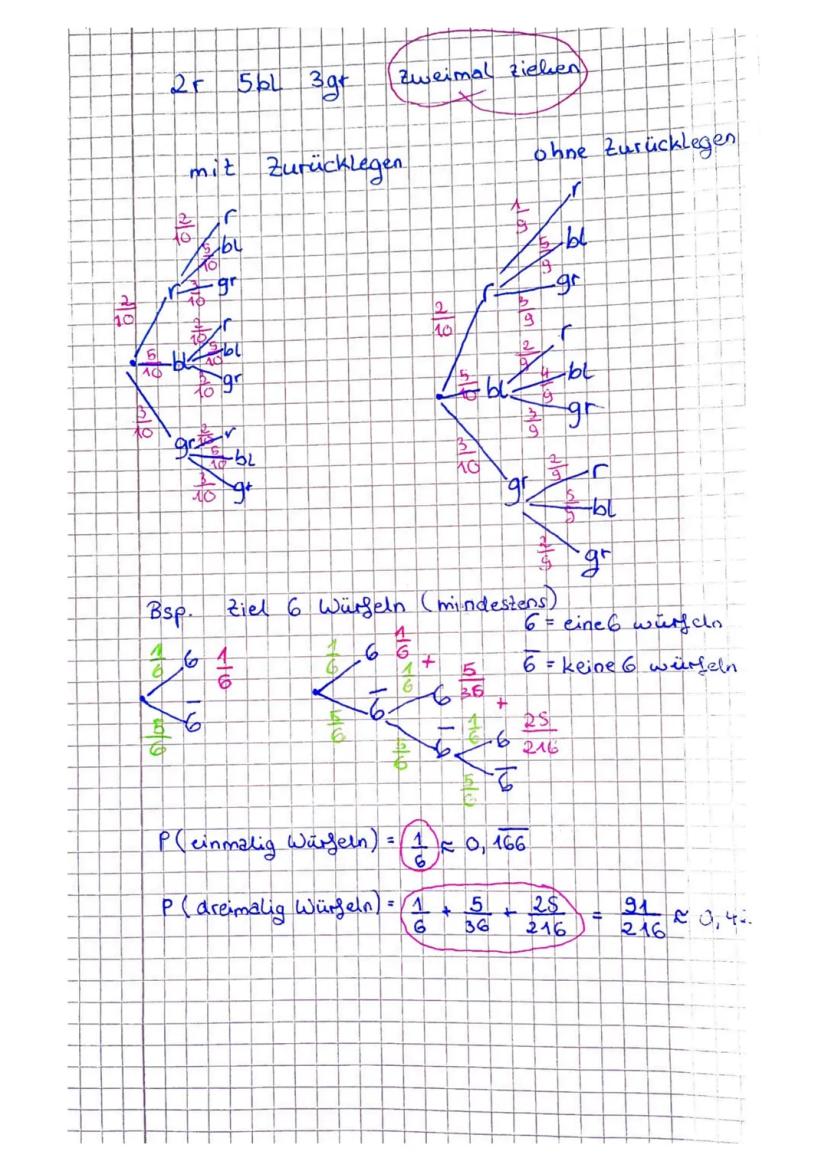 2r 5bl 3gr zweimal ziehen
mit Zurücklegen
ohne Zurücklegen
2/10 r
2/10 r
5/10 bl
3/10 gr
5/10 bl
2/10 r
5/10 bl
3/10 gr
3/10 gr
2/10 r
5/10 bl
3/10 gr
2/10 r
1/9 r
5/9 bl
3/9 gr
5/10 bl
2/9 r
4/9 bl
3/9 gr
3/10 gr
2/9 r
5/9 bl
2/9 gr
Bsp. Ziel 6 Würfeln (mindestens)
6 = eine 6 würfeln
6̅ = keine 6 würfeln
1/6 6 1/6
5/6 6̅
1/6 6 1/6 +
5/6 6̅
1/6 6 5/36 +
5/6 6̅
1/6 6 25/216
5/6 6̅
P(einmalig Würfeln) = 1/6 ≈ 0,1̅6̅6̅
P(dreimalig Würfeln) = 1/6 + 5/36 + 25/216 = 91/216 ≈ 0,4